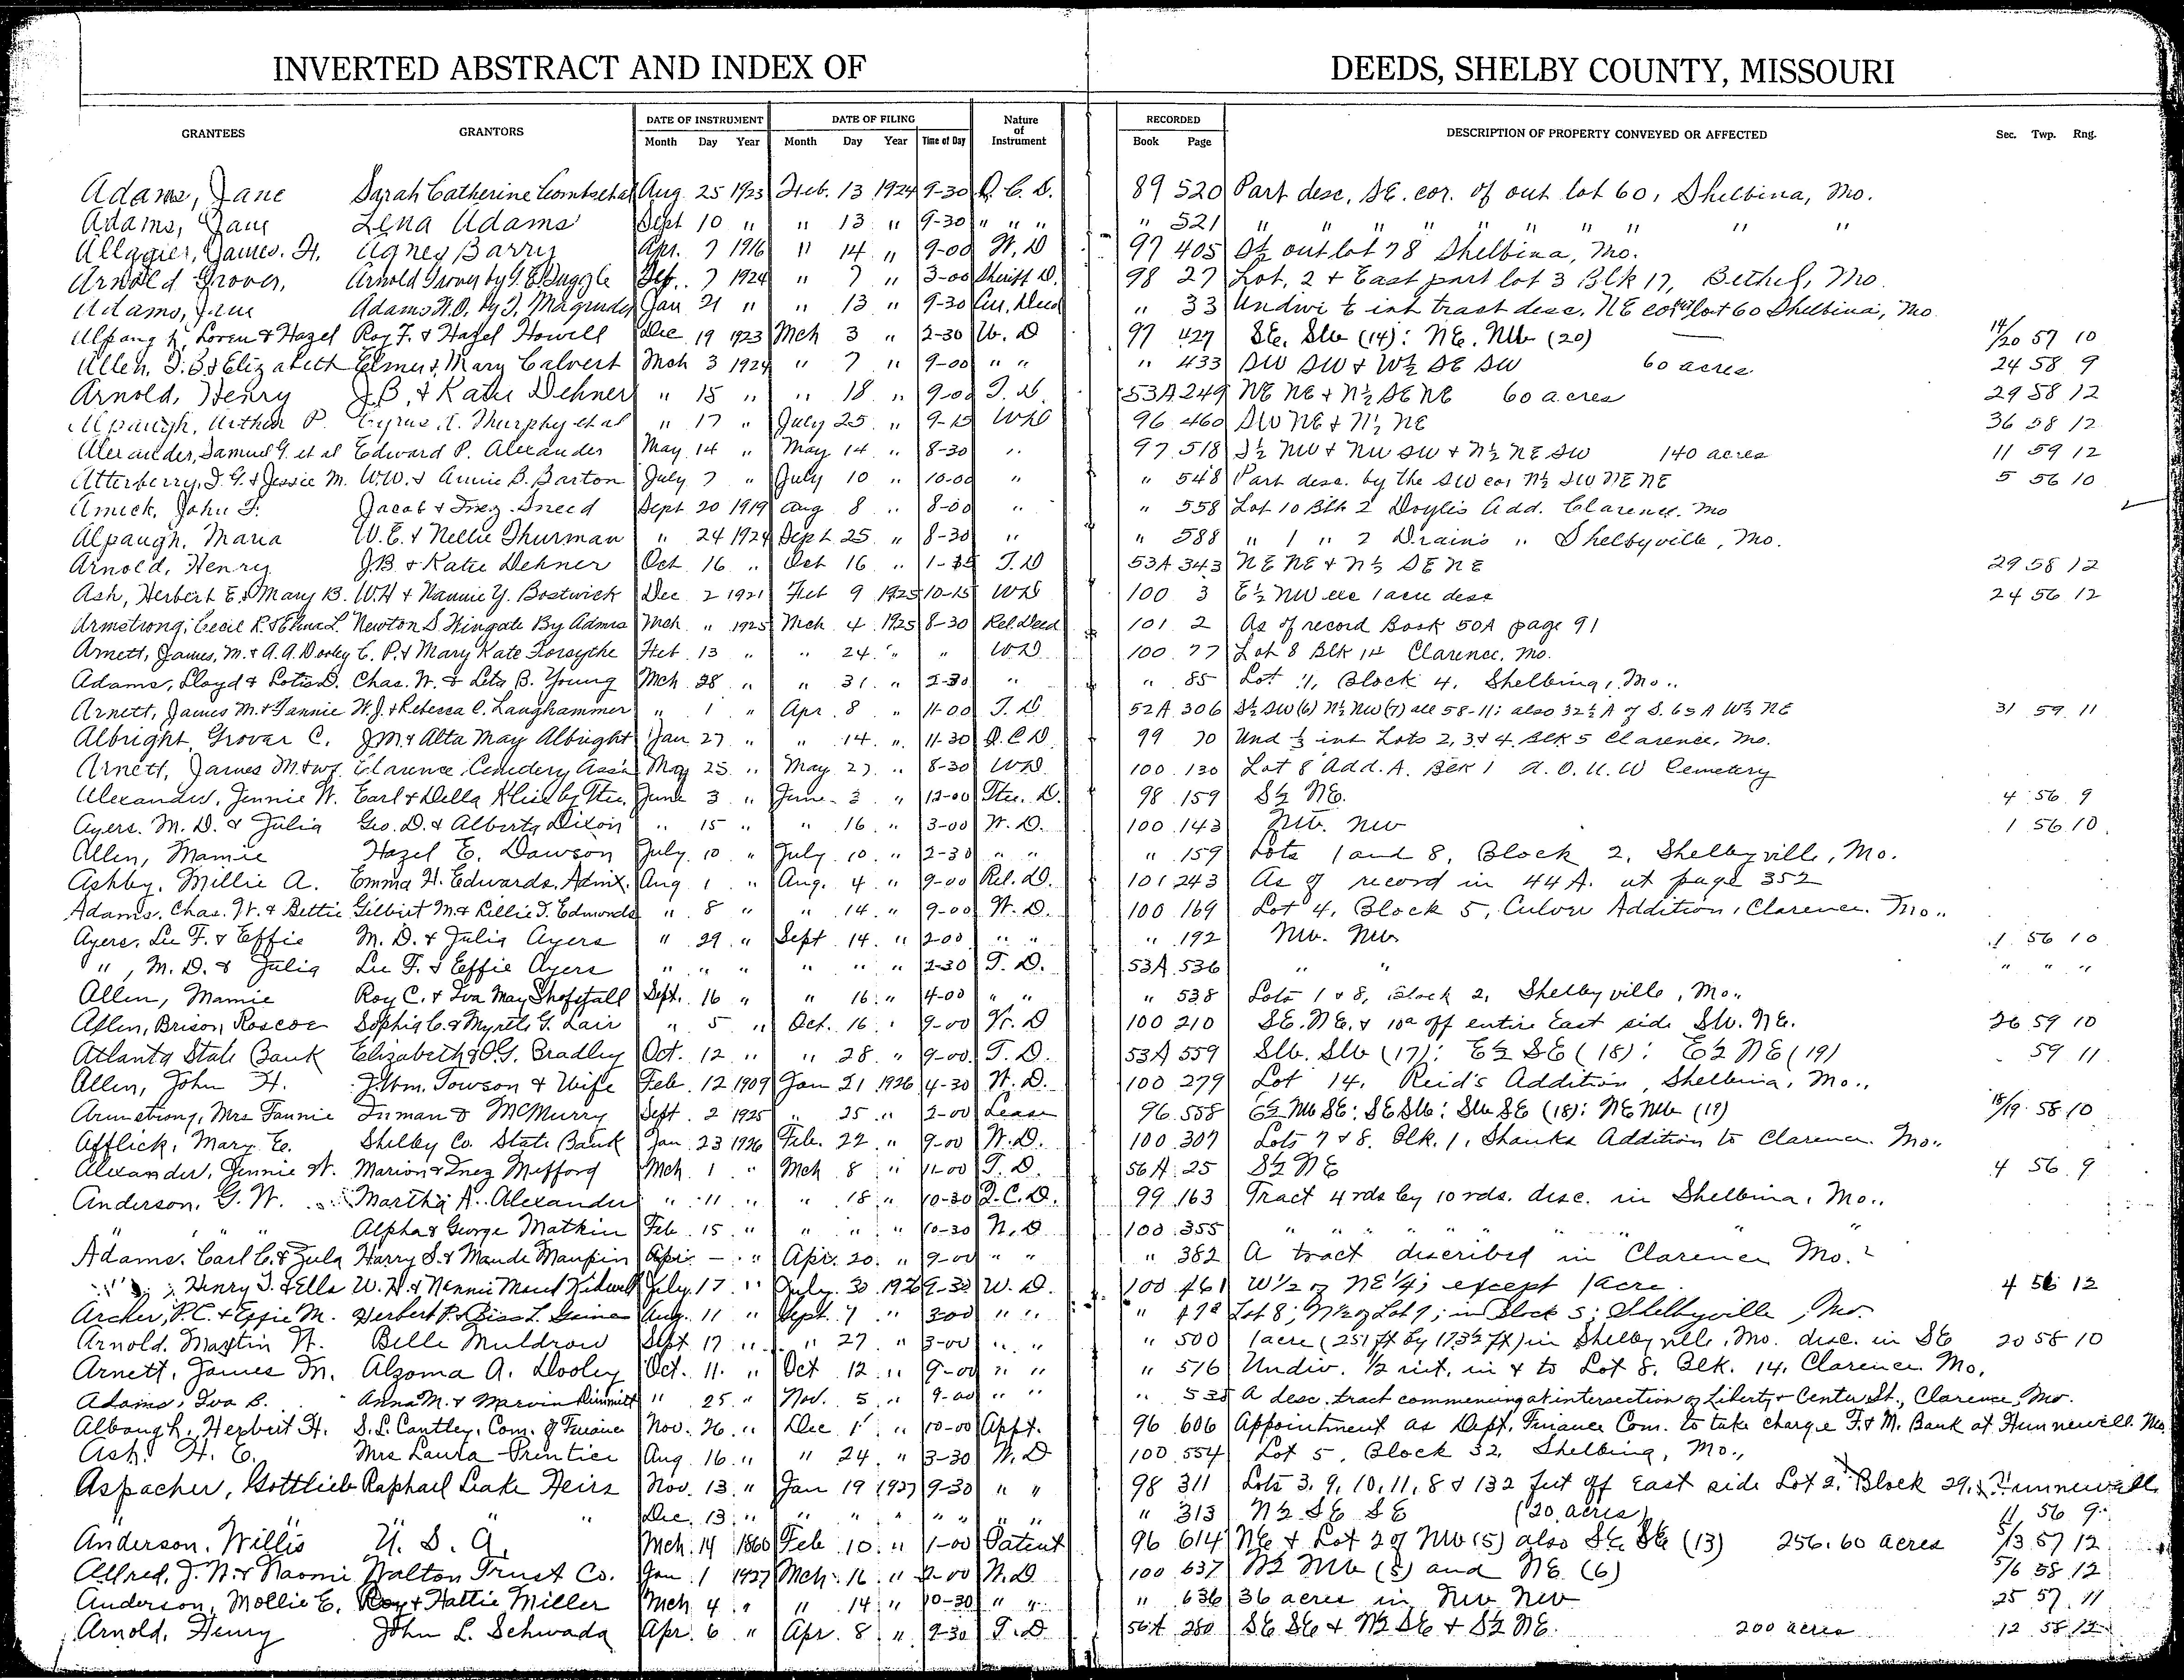 INVERTED ABSTRACT AND INDEX OF DEEDS, SHELBY COUNTY, MISSOURI
GRANTEES GRANTORS DATE OF INSTRUMENT DATE OF FILING Nature of Instrument RECORDED DESCRIPTION OF PROPERTY CONVEYED OR AFFECTED Sec. Twp. Rng.
Month Day Year Month Day Year Time of Day Book Page
Adams, Jane Sarah Catherine Aug 25 1923 Feb. 13 1924 9-30 Q. C. D. 89 520 Part desc. SE. cor. of out lot 60, Shelbina, Mo.
Adams, Jane Lena Adams Sept 10 " " 13 " 9-30 " " " " 521 " " " " " " "
Allagier, James. H. Agnes Barry Apr. 7 1916 " 14 " 9-00 W. D 97 405 S½ out lot 78 Shelbina, Mo.
Arnold Grover, Arnold Grover by Feb. 7 1924 " 7 " 3-00 Sheriff D. 98 27 Lot, 2 + East part lot 3 Blk 17, Bethel, Mo.
Adams, Jane Jan 21 " " 13 " 9-30 Cur. Deed " 33 Undivi int tract desc. NE cor lot 60 Shelbina, Mo
Alpaugh, Loren & Hazel Roy F. & Hazel Howell Dec 19 1923 Mch 3 " 2-30 W. D 97 427 SE. SW (14): NE. NW (20) 14/20 57 10
Allen, & Elizabeth Elmer & Mary Calvert Mch 3 1924 " 7 " 9-00 " " " 433 SW SW & W½ SE SW 60 acres 24 58 9
Arnold, Henry J.B. & Katie Dehner " 15 " " 18 " 9-00 T. D. 53A 249 NE NE + N½ SE NE 60 acres 29 58 12
Alpaugh, Arthur P. Cyrus Murphy et al " 17 " July 25 " 9-15 WD 96 460 SW NE + N½ NE 36 58 12
Alexander, Samuel G. et al Edward P. Alexander May 14 " May 14 " 8-30 " 97 518 S½ NW + NW SW + N½ NE SW 140 acres 11 59 12
Atterberry, J. G. & Jessie M. W.W. & Annie B. Barton July 7 " July 10 " 10-00 " " 548 Part desc. by the SW cor N½ SW NE NE 5 56 10
Amick, John F. Jacob + Inez Sneed Sept 20 1919 Aug 8 " 8-00 " " 558 Lot 10 Blk 2 Doyles Add. Clarence. Mo
Alpaugh, Maria W. E. + Nellie Thurman " 24 1924 Sept 25 " 8-30 " " 588 " 1 " 2 Drains " Shelbyville, Mo.
Arnold, Henry J.B. + Katie Dehner Oct 16 " Oct 16 " T. D 53A 343 NE NE + N½ SE NE 29 58 12
Ash, Herbert E. & Mary B. W.H + Nannie Y. Bostwick Dec 2 1921 Feb 9 1925 10-15 WD 100 3 E½ NW exc 1 acre desc 24 56 12
Armstrong, Cecil R. & Newton S Wingate By Admr Mch " 1925 Mch 4 1925 8-30 Rel. Deed 101 2 As of record Book 50A page 91
Arnett, James, M. & A. A. Dooley C. P. & Mary Kate Forsythe Feb 13 " " 24 " " WD 100 77 Lot 8 Blk 14 Clarence, Mo.
Adams, Lloyd & Lotis D. Chas. W. & Leta B. Young Mch 28 " " 31 " 2-30 " " 85 Lot 11, Block 4, Shelbina, Mo..
Arnett, James M. & Fannie W. J. + Rebecca C. Laughammer " 1 " Apr. 8 " 11-00 T. D 52A 306 S½ SW (6) N½ NW (7) all 58-11; also 32½ A of S. 65 A W½ NE 31 59 11
Albright Grovar C. J M & Alta May Albright Jan 27 " " 14 " 11-30 Q. C D. 99 70 Und ⅓ int Lots 2, 3 & 4 Blk 5 Clarence, Mo.
Arnett, James M. & wf. Clarence Cemetery Ass'n May 25 " May 27 " 8-30 WD. 100 130 Lot 8 Add. A. Blk 1 A. O. U. W Cemetery
Alexander, Jennie W. Earl & Della by Tru. June 3 " June 3 " 12-00 Tru. D. 98 159 S½ NE. 4 56 9
Ayers. M. D. & Julia Geo. D. & Alberta Dixon " 15 " " 16 " 3-00 W. D. 100 143 NW. NW 1 56 10
Allen, Mamie Hazel E. Dawson July 10 " July 10 " 2-30 " " " 159 Lots 1 and 8, Block 2, Shelbyville, Mo.
Ashby, Millie A. Emma H. Edwards, Admx. Aug 1 " Aug. 4 " 9-00 Rel. D. 101 243 As of record in 44 A. at page 352
Adams, Chas. W. & Bettie Gilbert M. & Lillie J. Edmonds " 8 " " 14 " 9-00 W. D. 100 169 Lot 4, Block 5, Culver Addition, Clarence. Mo..
Ayers, Lee F. & Effie M. D. & Julia Ayers " 29 " Sept 14 " 2-00 " " " 192 NW. NW 1 56 10
" , M. D. & Julia Lee F. & Effie Ayers " " " " " " 2-30 T. D. 53A 536 " " " " "
Allen, Mamie Roy C. & Iva May Shofstall Sept. 16 " " 16 " 4-00 " " " 538 Lots 1 & 8, Block 2, Shelbyville, Mo..
Allen, Brison Roscoe Sophia C. & Myrtle G. Lair " 5 " Oct. 16 " 9-00 W. D 100 210 SE. NE. & 10a off entire East side SW. NE. 26 59 10
Atlanta State Bank Elizabeth & O.G. Bradley Oct. 12 " " 28 " 9-00 T. D. 53A 559 SW. SW (17): E½ SE (18): E½ NE (19) 59 11
Allen, John H. J. Wm. Towson & Wife Feb. 12 1909 Jan 21 1926 4-30 W. D. 100 279 Lot 14, Reid's Addition, Shelbina, Mo..
Armstrong, Mrs Fannie Truman & McMurry Sept. 2 1925 " 25 " 2-00 Lease 96 558 E½ NW SE: SE SW: SW SE (18): NE NW (19) 18/19 58 10
Afflick, Mary E. Shelby Co. State Bank Jan 23 1926 Feb. 22 " 9-00 W. D. 100 307 Lots 7 & 8. Blk. 1, Shanks Addition to Clarence. Mo..
Alexander, Jennie W. Marion & Inez Mefford Mch 1 " Mch 8 " 11-00 T. D. 56A 25 S½ NE 4 56 9
Anderson, G. W. Martha A. Alexander " 11 " " 18 " 10-30 Q. C. D. 99 163 Tract 4 rds by 10 rds. desc. in Shelbina, Mo..
" " " Alpha & George Matkin Feb 15 " " " " 10-30 W. D 100 355 " " " " " " " "
Adams, Carl C. & Zula Harry S. & Maude Maupin Apr. — " Apr. 20 " 9-00 " " " 382 A tract described in Clarence Mo.
" , Henry J. & Ella W. H. & Nannie Maud Kidwell July 17 " July 30 1926 9-30 W. D. 100 461 W½ of NE¼; except 1 acre 4 56 12
Archer, P. C. & Effie M. Herbert P. & Aug. 11 " Sept. 7 " 3-00 " " " Lot 8; N½ of Lot 7; in Block 5; Shelbyville, Mo.
Arnold. Martin W. Belle Muldrow Sept 17 " " 27 " 3-00 " " " 500 1 acre (251 ft by 173½ ft) in Shelbyville, Mo. desc. in SE 20 58 10
Arnett, James M. Alzoma A. Dooley Oct. 11 " Oct 12 " 9-00 " " " 516 Undiv. ½ int. in & to Lot 8, Blk. 14, Clarence Mo.
Adams, Iva B. Anna M. & Marvin Dimmitt " 25 " Nov. 5 " 9-00 " " " 535 A desc. tract commencing at intersection of Liberty & Center St., Clarence, Mo.
Albaugh, Herbert H. S. L. Cantley, Com. of Finance Nov. 26 " Dec 1 " 10-00 Appt. 96 606 Appointment as Dept. Finance Com. to take charge F. & M. Bank at Hunnewell. Mo
Ash, H. E. Mrs Laura Prentice Aug 16 " " 24 " 3-30 W. D 100 554 Lot 5, Block 32, Shelbina, Mo.,
Aspacher, Gottlieb Raphael Leake Heirs Nov. 13 " Jan 19 1927 9-30 " " 98 311 Lots 3, 9, 10, 11, 8 & 132 feet off East side Lot 2, Block 29, Hunnewell
" " " " Dec. 13 " " " " " " " " " 313 N½ SE SE (20 acres) 11 56 9
Anderson, Willis U. S. A. Mch. 14 1860 Feb 10 " 1-00 Patent 96 614 NE & Lot 2 of NW (5) also SE SE (13) 256.60 acres 5/13 57 12
Allred, J. W. & Naomi Walton Trust Co. Jan. 1 1927 Mch. 16 " 2-00 W. D 100 637 N½ NW (5) and NE. (6) 5/6 58 12
Anderson, Mollie E. Roy & Hattie Miller Mch 4 " " 14 " 10-30 " " " 636 36 acres in NW NW 25 57 11
Arnold, Henry John L. Schwada Apr. 6 " Apr. 8 " 9-30 T. D 56A 280 SE SE & N½ SE & S½ NE. 200 acres 12 58 12